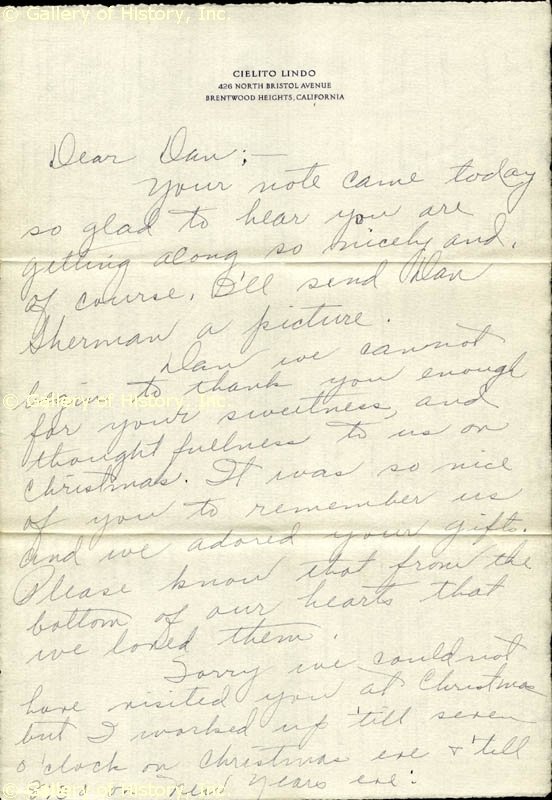 © Gallery of History, Inc.
CIELITO LINDO
426 NORTH BRISTOL AVENUE
BRENTWOOD HEIGHTS, CALIFORNIA
Dear Dan;—
Your note came today
so glad to hear you are
getting along so nicely and,
of course, I'll send Dan
Sherman a picture.
Dan we cannot
begin to thank you enough
© Gallery of History, Inc.
for your sweetness, and
thoughtfullness to us on
Christmas. It was so nice
of you to remember us
and we adored your gifts.
Please know that from the
bottom of our hearts that
we loved them.
Sorry we could not
have visited you at Christmas
but I worked up 'till seven
o'clock on Christmas eve & 'till
on New Years eve.
© Gallery of History, Inc.